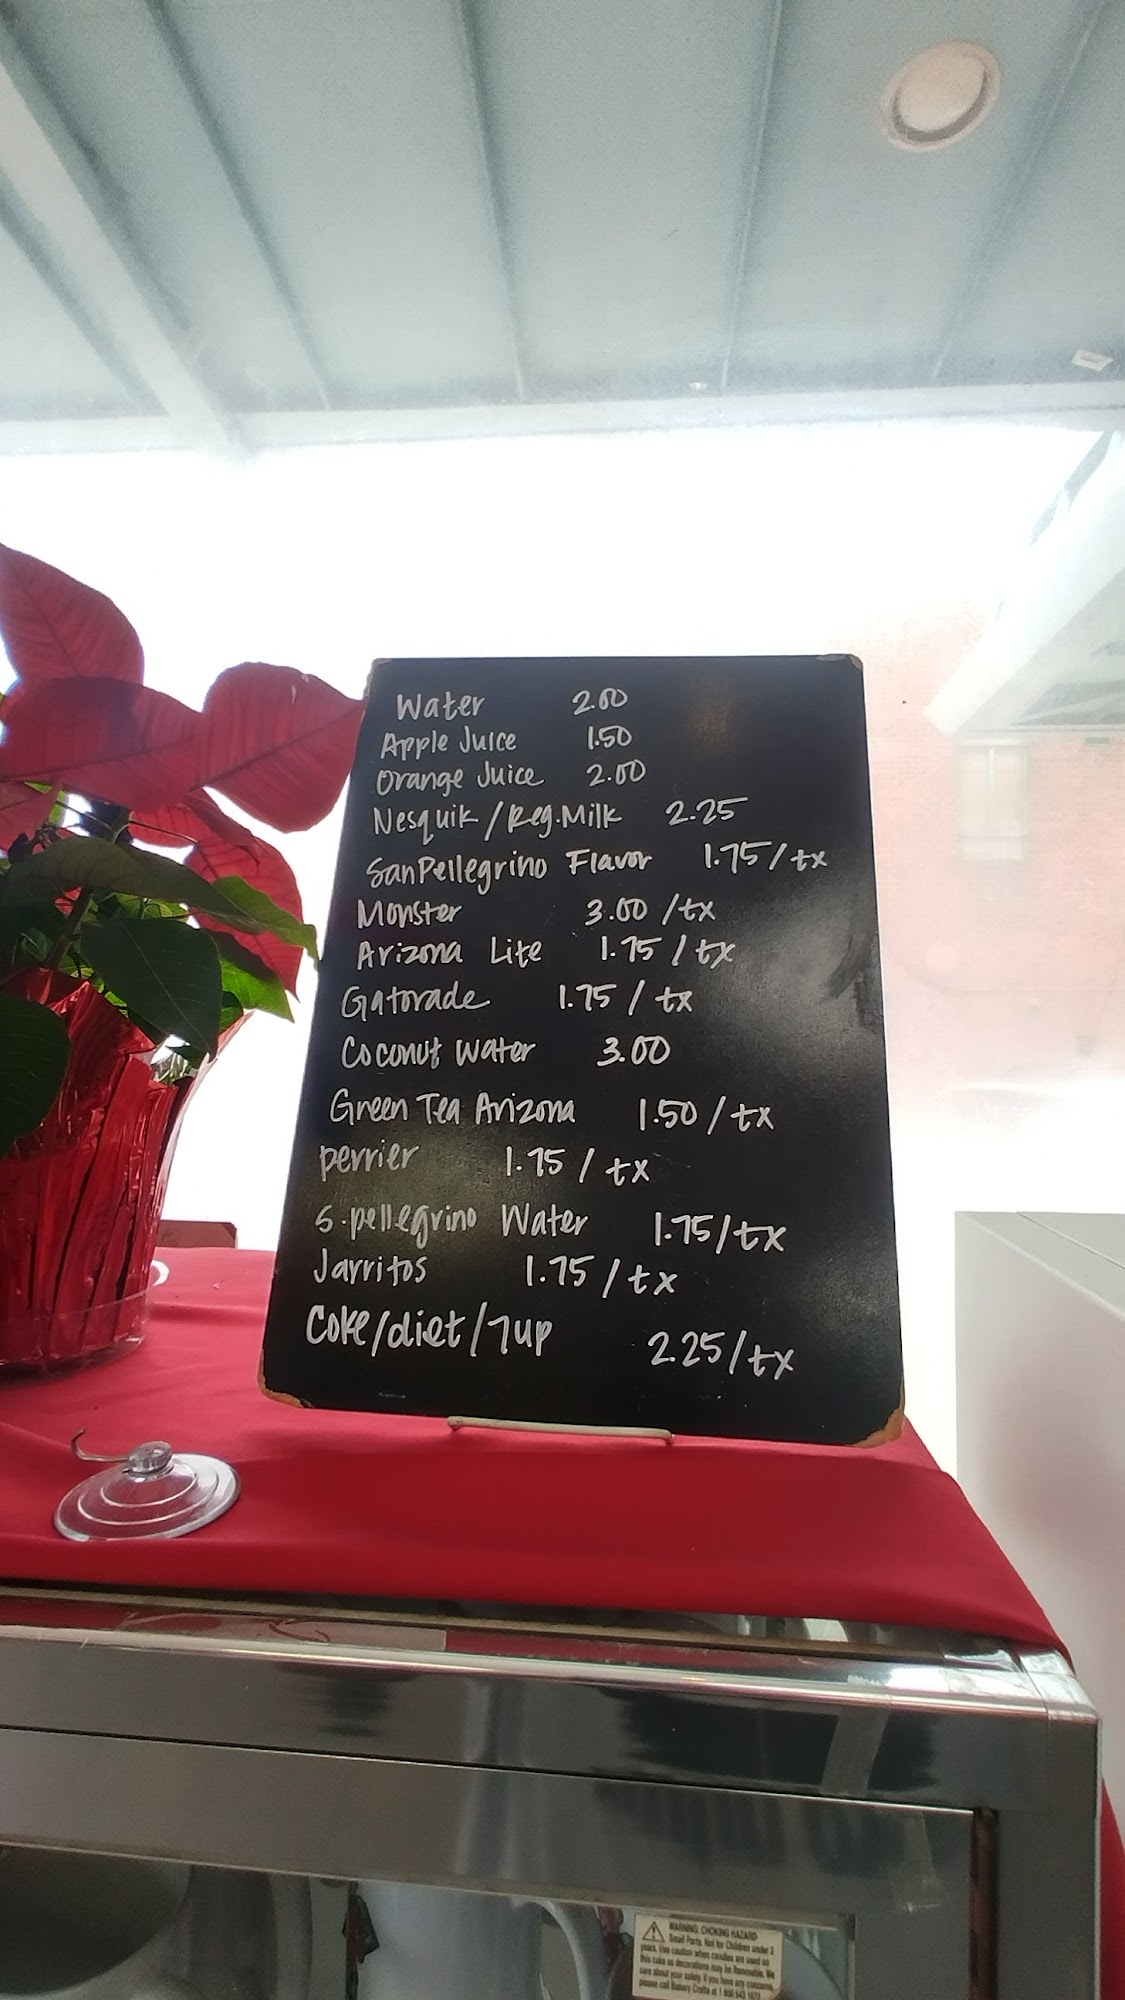 Water 2.00
Apple Juice 1.50
Orange Juice 2.00
Nesquik/Reg. Milk 2.25
SanPellegrino Flavor 1.75/tx
Monster 3.00/tx
Arizona Lite 1.75/tx
Gatorade 1.75/tx
Coconut Water 3.00
Green Tea Arizona 1.50/tx
perrier 1.75/tx
S.pellegrino Water 1.75/tx
Jarritos 1.75/tx
Coke/diet/7up 2.25/tx
WARNING: CHOKING HAZARD-
Small Parts. Not for Children under 3
years. Use caution when candles are used as
this cake as decorations may be flammable. We
care about your safety, if you have any concerns,
please call Bakery Crafts at 1 800 543 1673